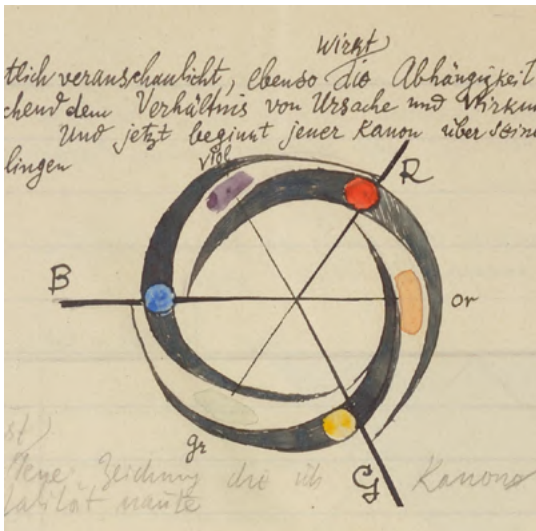 wirkt
tlich veranschaulicht, ebenso die Abhängigkeit
chend dem Verhältnis von Ursache und Wirkun
Und jetzt beginnt jener Kanon über seine
lingen
viol
R
B
or
gr
G
st)
Neue Zeichnung die ich Kanon
alität nannte